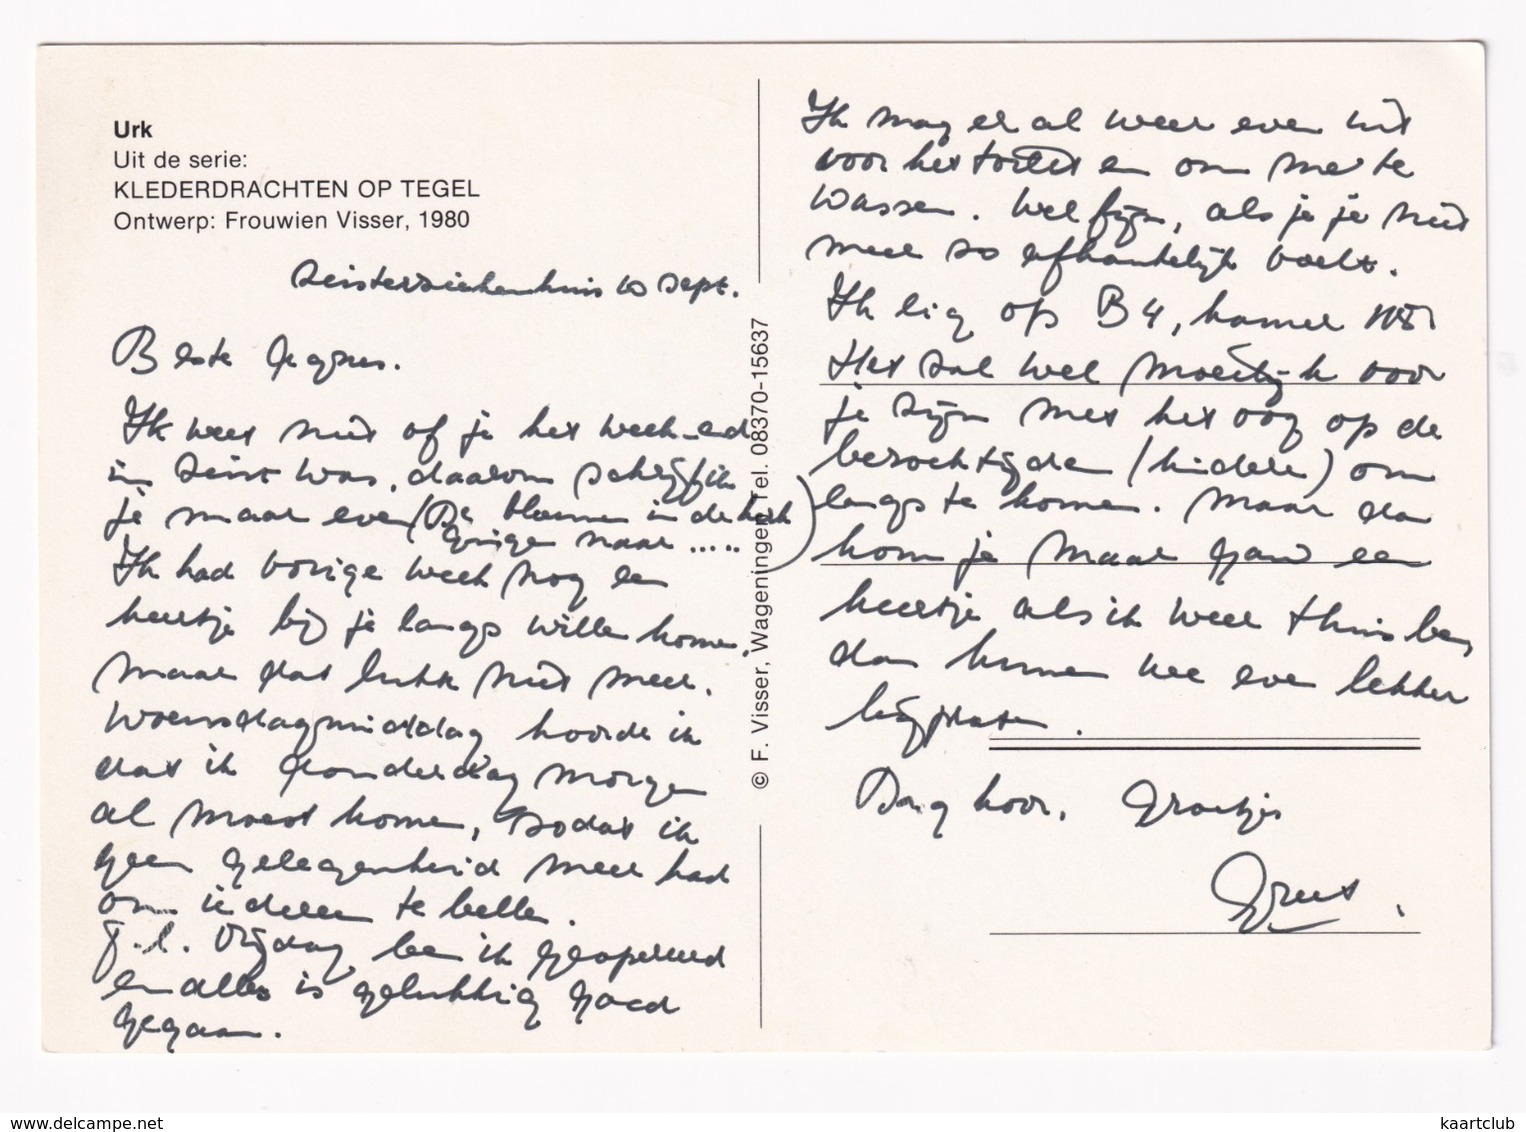 Urk
Uit de serie:
KLEDERDRACHTEN OP TEGEL
Ontwerp: Frouwien Visser, 1980
Zeisterziekenhuis 10 sept.
Beste
Ik weet niet of je het week-end
in Zeist was, daarom schrijf ik
je maar even (De bloemen in de kerk
gingen naar .....)
Ik had vorige week nog een
keertje bij je langs willen komen,
maar dat lukte niet meer.
Woensdagmiddag hoorde ik
dat ik donderdag morgen
al moest komen, zodat ik
geen gelegenheid meer had
om iedereen te bellen.
j.l. Vrijdag ben ik geopereerd
en alles is gelukkig goed
gegaan.
© F. Visser, Wageningen, Tel. 08370-15637
Ik mag er al weer even uit
voor het toilet en om me te
wassen. Wel fijn, als je je niet
meer zo afhankelijk voelt.
Ik lig op B4, kamer
Het zal wel moeilijk voor
je zijn met het oog op de
bezoektijden (kinderen) om
langs te komen. Maar dan
kom je maar gauw een
keertje als ik weer thuis ben,
dan kunnen we even lekker
bijpraten.
Dag hoor, Groetjes
Greet.
www.delcampe.net
kaartclub